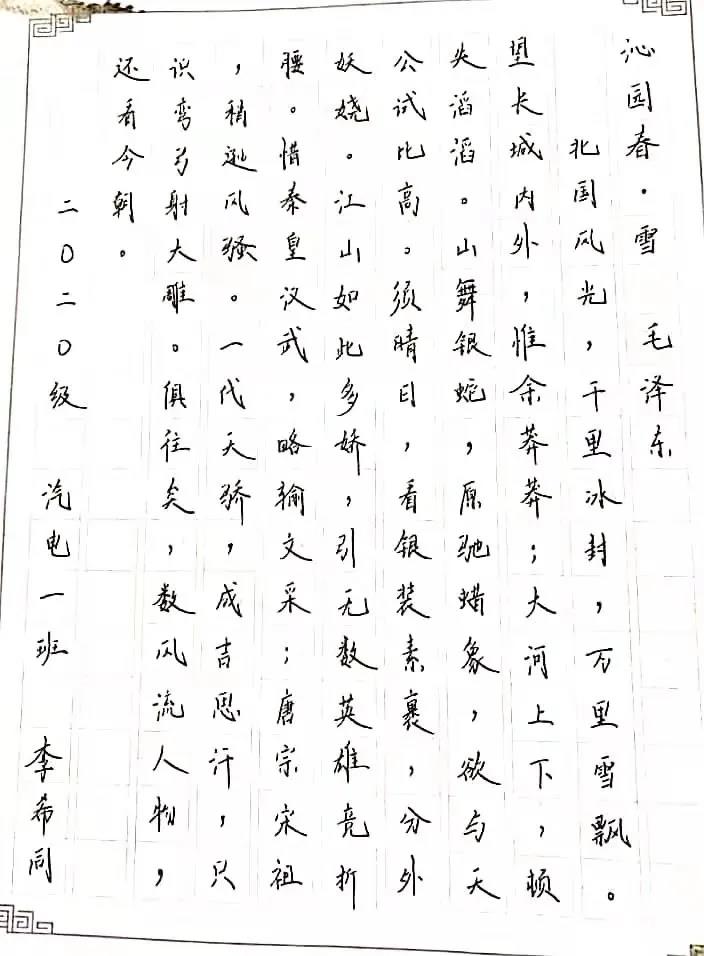 沁园春·雪 毛泽东
北国风光，千里冰封，万里雪飘。
望长城内外，惟余莽莽；大河上下，顿
失滔滔。山舞银蛇，原驰蜡象，欲与天
公试比高。须晴日，看银装素裹，分外
妖娆。江山如此多娇，引无数英雄竞折
腰。惜秦皇汉武，略输文采；唐宗宋祖
，稍逊风骚。一代天骄，成吉思汗，只
识弯弓射大雕。俱往矣，数风流人物，
还看今朝。
二〇二〇级 汽电一班 李希同